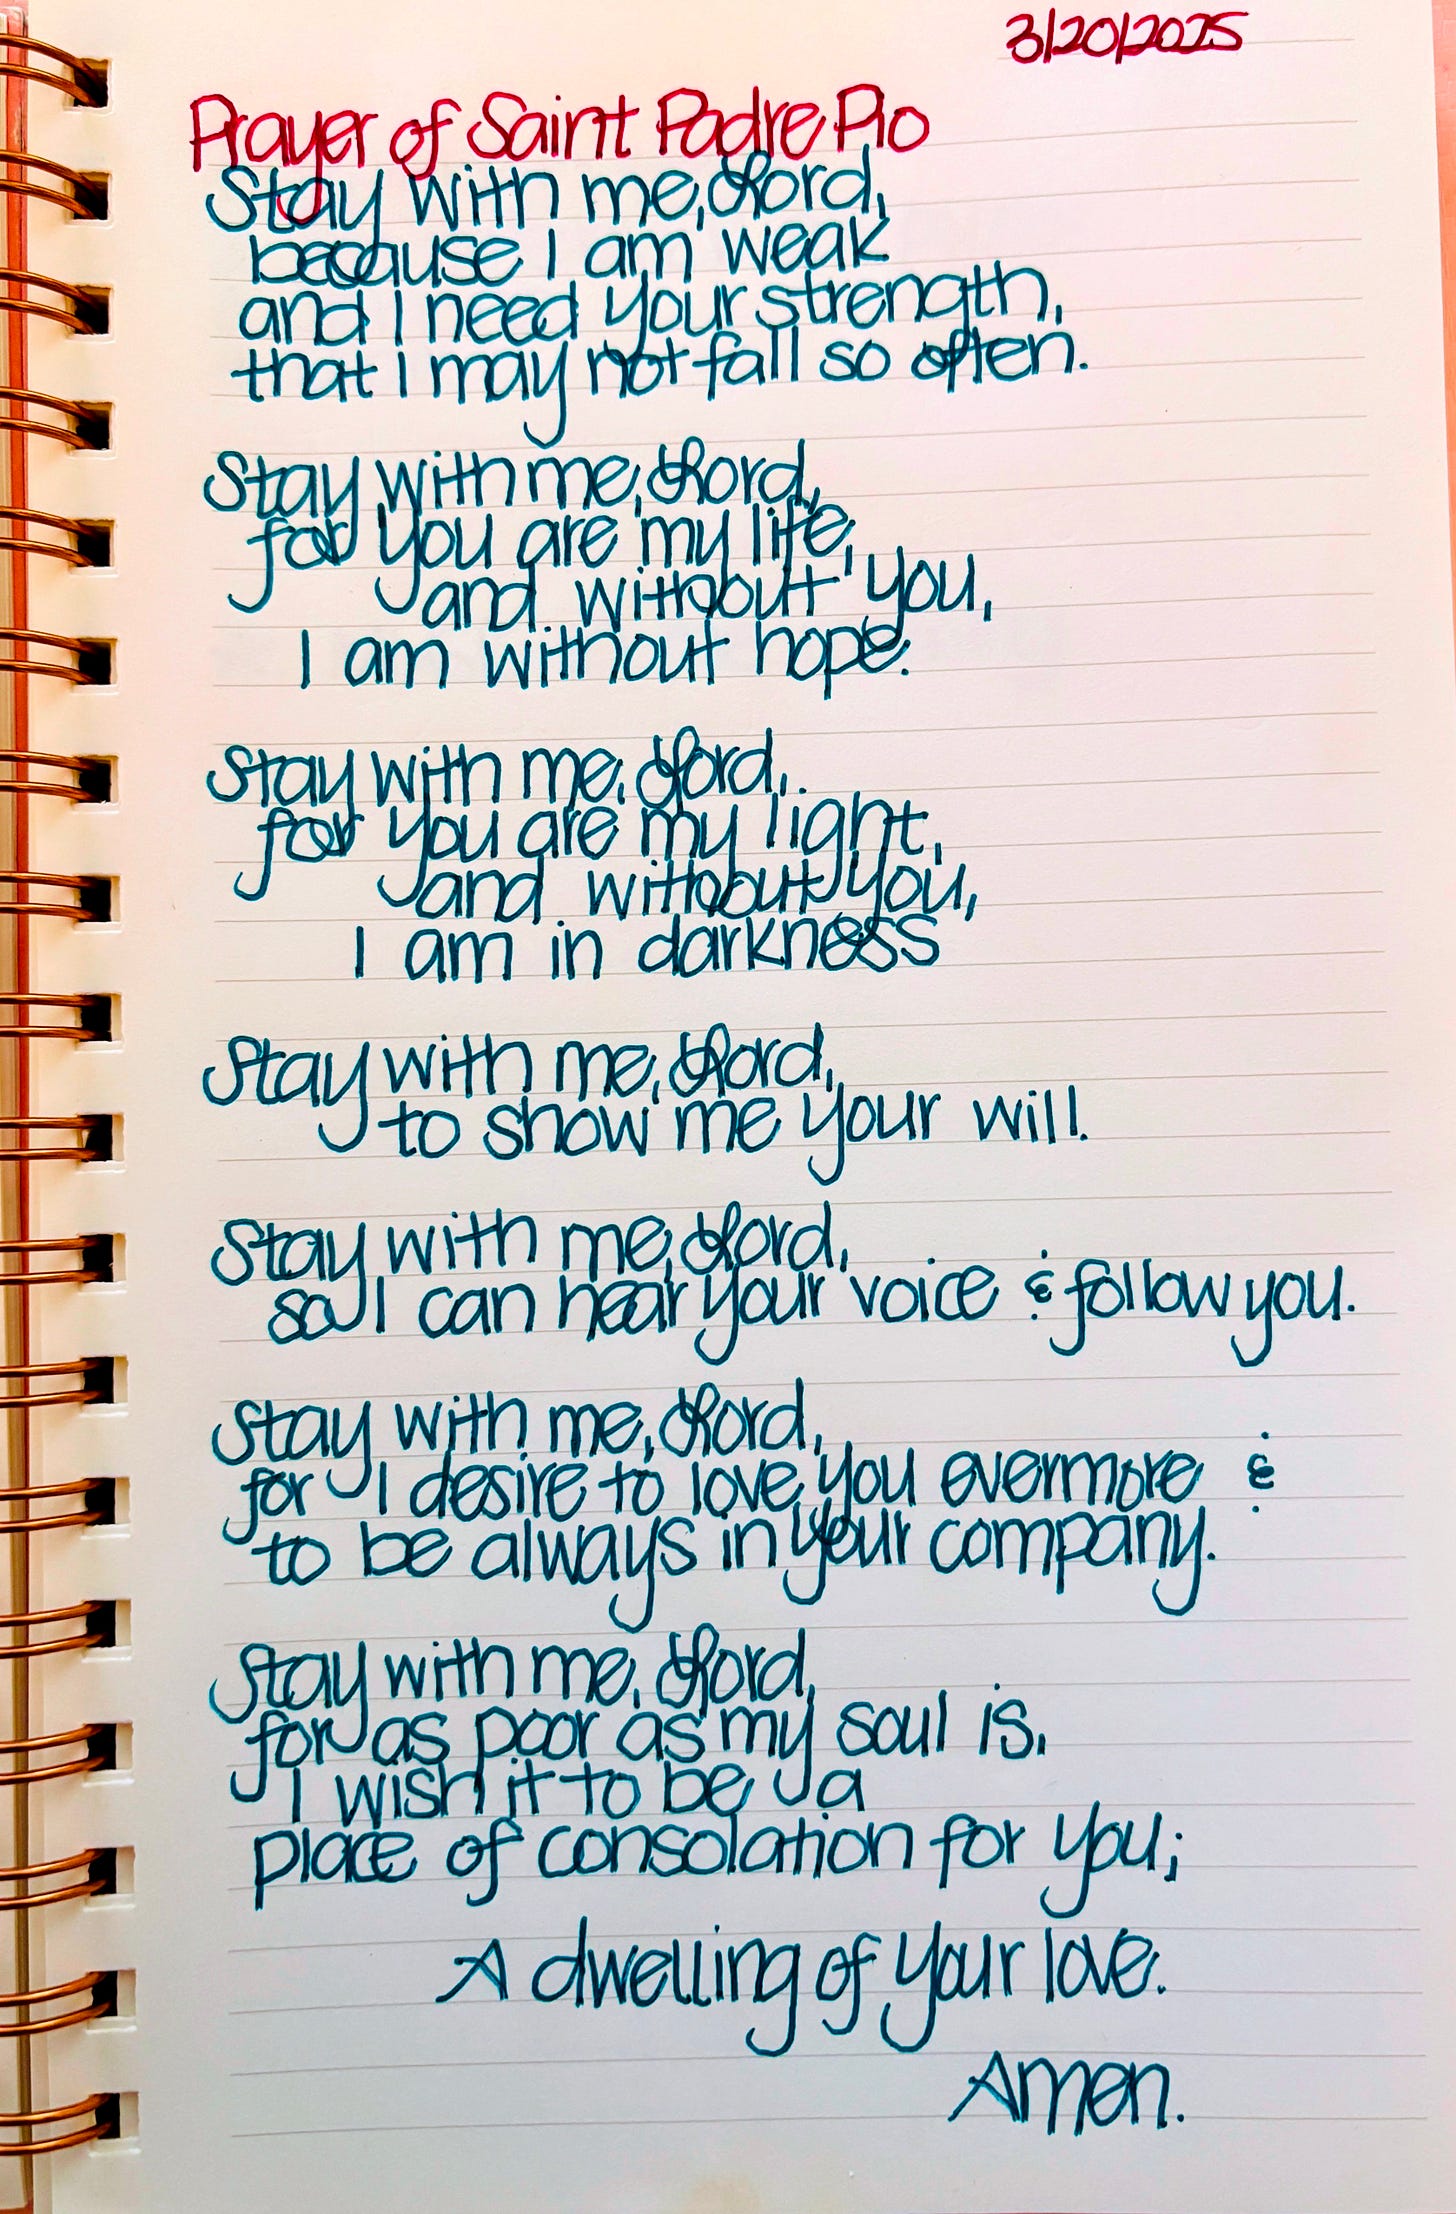 3/20/2025
Prayer of Saint Padre Pio
Stay with me, Lord,
because I am weak
and I need your strength,
that I may not fall so often.
Stay with me, Lord,
for you are my life,
and without you,
I am without hope.
Stay with me, Lord,
for you are my light,
and without you,
I am in darkness
Stay with me, Lord,
to show me your will.
Stay with me, Lord,
so I can hear your voice & follow you.
Stay with me, Lord,
for I desire to love you evermore &
to be always in your company.
Stay with me, Lord,
for as poor as my soul is,
I wish it to be a
place of consolation for you;
A dwelling of your love.
Amen.